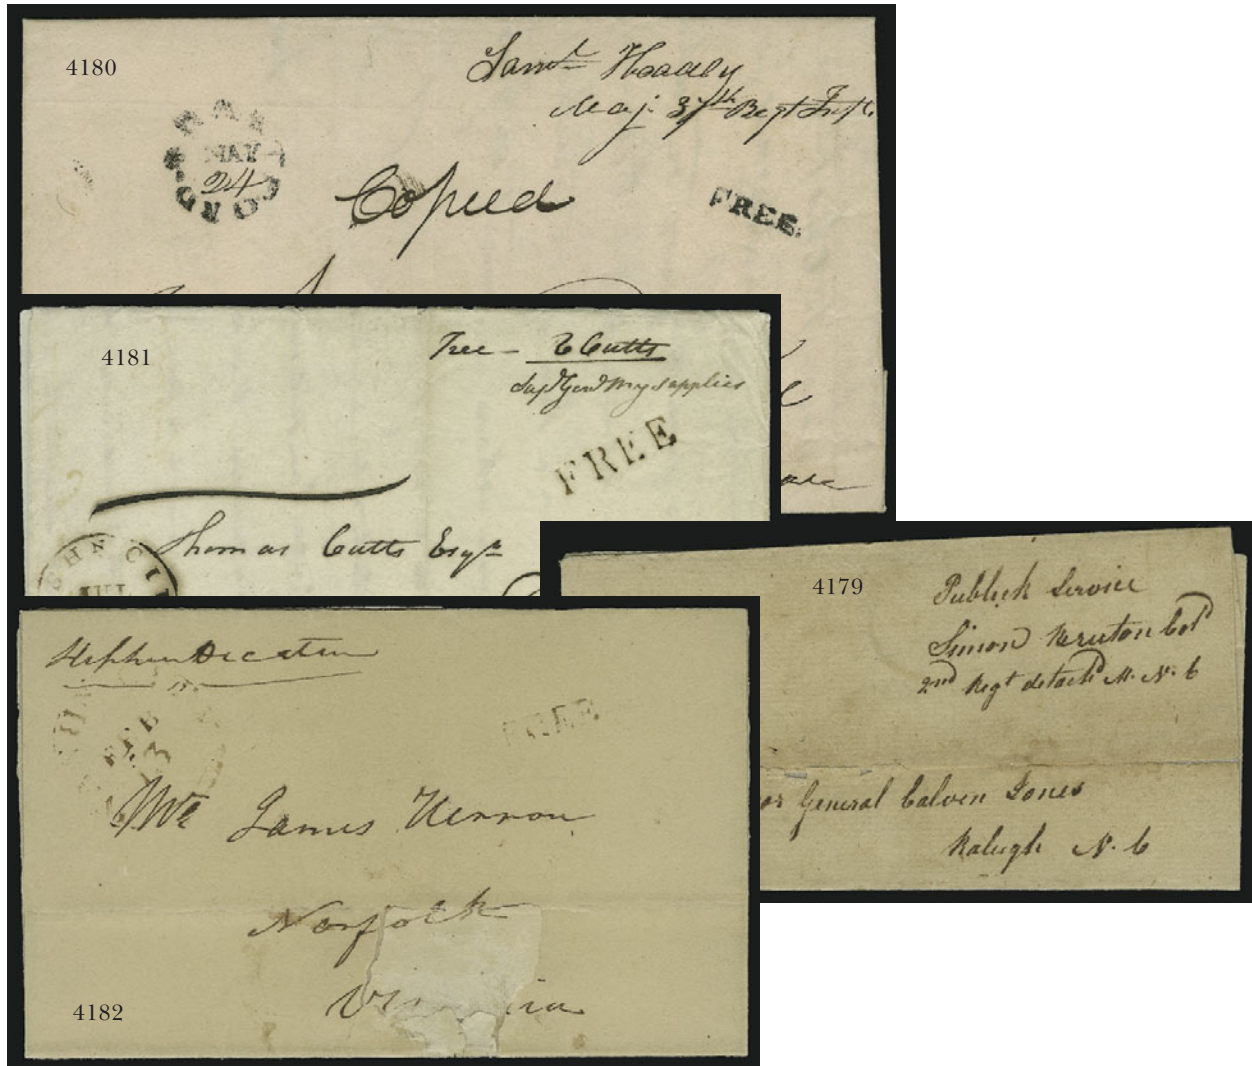 4180
Saml Hoadly
Maj. 37th Regt Infr.
HARTFORD
MAY
24
Copied
FREE.
4181
Free — T Cutts
Supt Genl My supplies
FREE
Thomas Cutts Esqr
SH'N CIT
JUL
4179
Publick Service
Simon Bruton Col
2nd Regt detachd M. N. C
General Calvin Jones
Raleigh N. C
Stephen Decatur
FEB
13
FREE
Mr James Vernon
Norfolk
4182